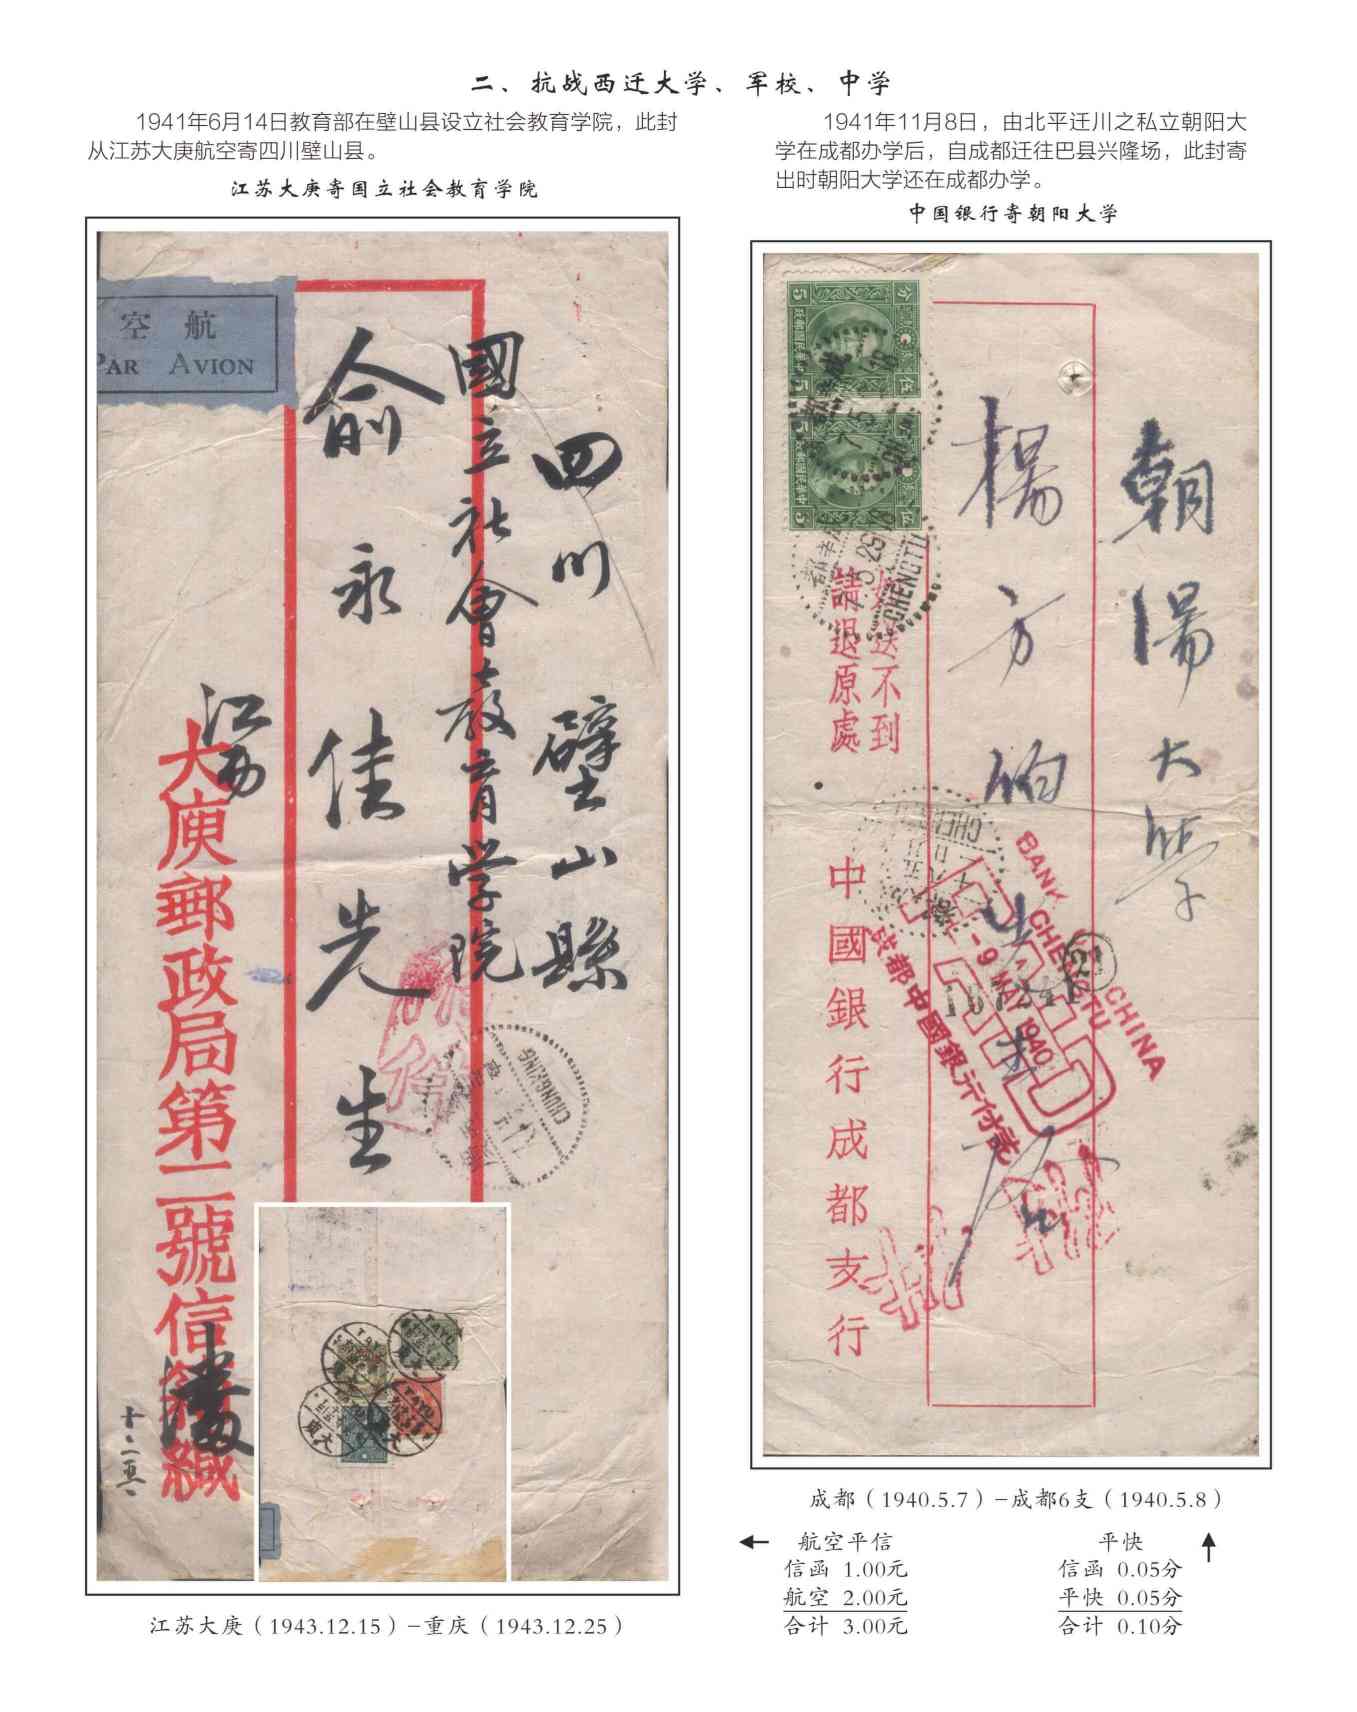 二、抗战西迁大学、军校、中学
1941年6月14日教育部在壁山县设立社会教育学院，此封
从江苏大庚航空寄四川壁山县。
江苏大庚寄国立社会教育学院
航空
PAR AVION
四川 璧山縣
國立社會教育学院
俞永佳先生
江西
大庾郵政局第二號信箱緘
十二、
CHUNGKING
TAYU
TAYU
TAYU
大庾
江苏大庚（1943.12.15）–重庆（1943.12.25）
1941年11月8日，由北平迁川之私立朝阳大
学在成都办学后，自成都迁往巴县兴隆场，此封寄
出时朝阳大学还在成都办学。
中国银行寄朝阳大学
5 分 伍
中華民國郵政
5 分 伍
中華民國郵政
CHENGTU
朝陽大學
楊方
不到
請退原處
中國銀行成都支行
BANK OF CHINA
CHENGTU
PAID
-9 MAY 1940
成都中國銀行付訖
成都（1940.5.7）–成都6支（1940.5.8）
← 航空平信
信函 1.00元
航空 2.00元
合计 3.00元
平快 ↑
信函 0.05分
平快 0.05分
合计 0.10分